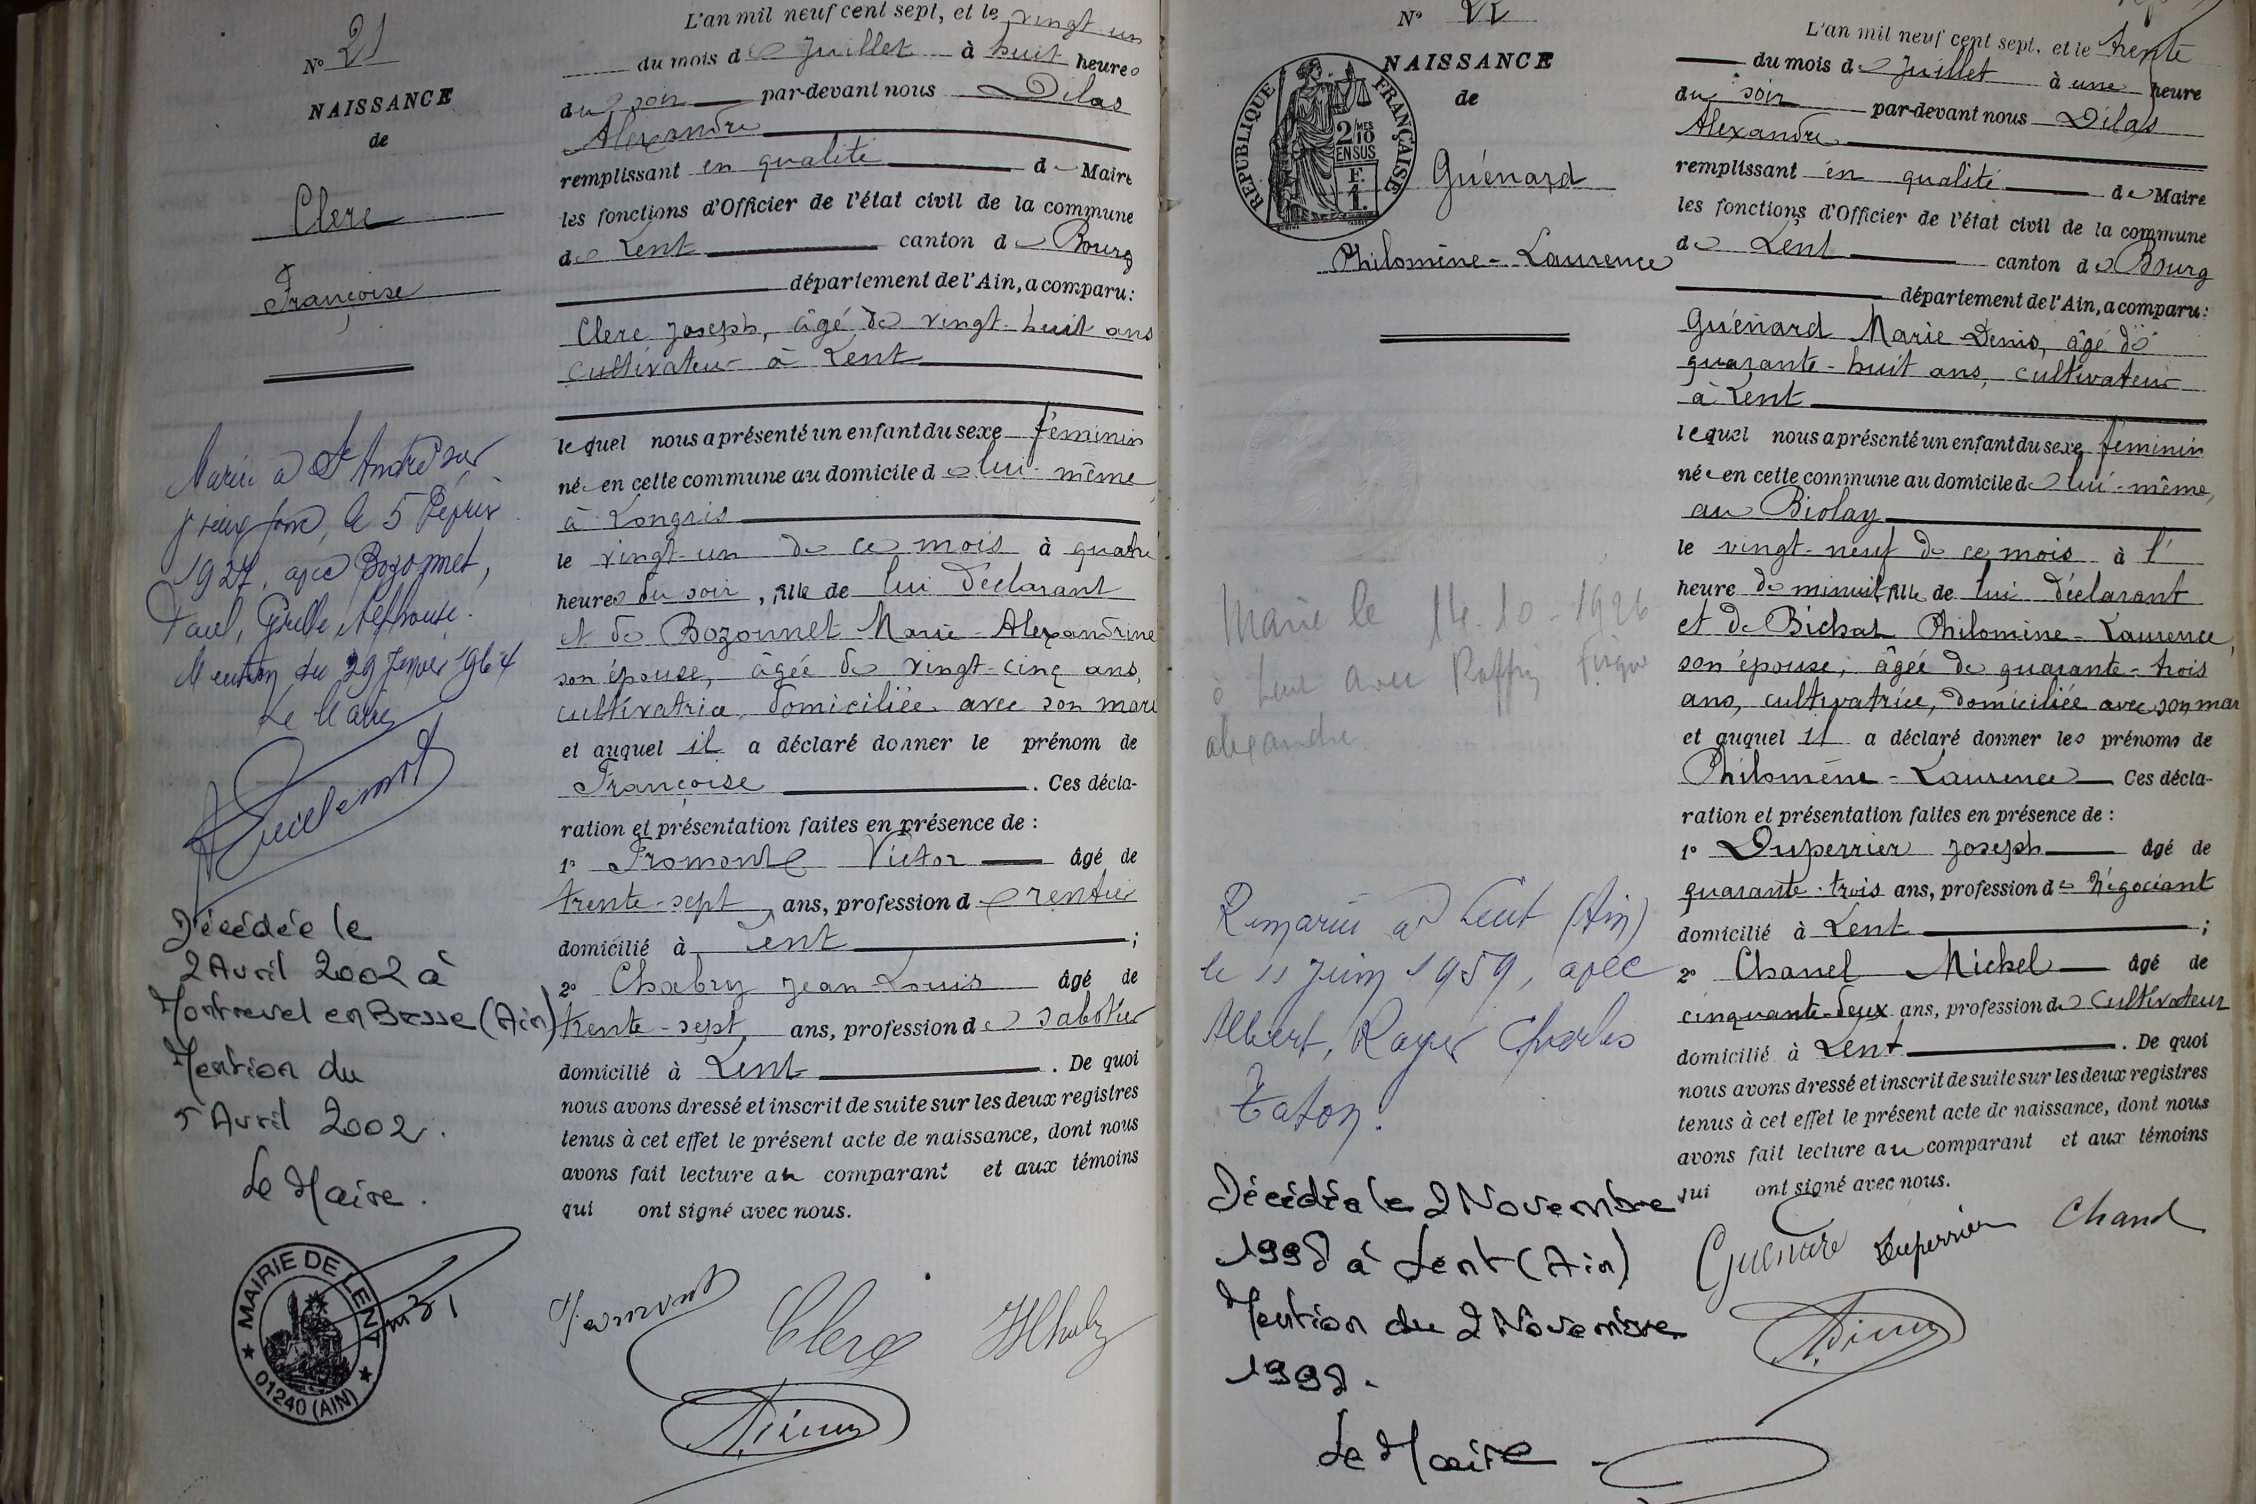 N° 21
NAISSANCE
de
Clerc
Françoise
Marié à St André sur
le 5
1927, avec Bozonnet,
Paul,
Mention du 29 Janvier 1964
Le Maire
Décédée le
2 Avril 2002 à
Montrevel en Bresse (Ain)
Mention du
5 Avril 2002.
Le Maire.
MAIRIE DE LENT
01240 (AIN)
L'an mil neuf cent sept, et le vingt un
du mois de Juillet à huit heures
du soir par-devant nous Dilas
Alexandre
remplissant en qualité de Maire
les fonctions d'Officier de l'état civil de la commune
de Lent canton de Bourg
département de l'Ain, a comparu:
Clerc Joseph, âgé de vingt-huit ans
cultivateur à Lent
lequel nous a présenté un enfant du sexe féminin
née en cette commune au domicile de lui-même
à Longris
le vingt-un de ce mois à quatre
heures du soir, fille de lui déclarant
et de Bozonnet Marie-Alexandrine
son épouse, âgée de vingt-cinq ans,
cultivatrice, domiciliée avec son mari
et auquel il a déclaré donner le prénom de
Françoise. Ces décla-
ration et présentation faites en présence de:
1° Fromont Victor âgé de
trente-sept ans, profession de rentier
domicilié à Lent;
2° Chabry Jean Louis âgé de
trente-sept ans, profession de sabotier
domicilié à Lent. De quoi
nous avons dressé et inscrit de suite sur les deux registres
tenus à cet effet le présent acte de naissance, dont nous
avons fait lecture au comparant et aux témoins
qui ont signé avec nous.
Clerc
N° 22
NAISSANCE
de
REPUBLIQUE FRANÇAISE
2/10 MES
EN SUS
F.
1.
Guénard
Philomène-Laurence
Marié le 14-10-1926
à Lent avec Raffin
alexandre
Remarié à Lent (Ain)
le 11 Juin 1959, avec
Albert, Roger Charles
Taton.
Décédée le 2 Novembre
1998 à Lent (Ain)
Mention du 2 Novembre
1998.
Le Maire
L'an mil neuf cent sept, et le trente
du mois de Juillet à une heure
du soir par-devant nous Dilas
Alexandre
remplissant en qualité de Maire
les fonctions d'Officier de l'état civil de la commune
de Lent canton de Bourg
département de l'Ain, a comparu:
Guénard Marie Denis, âgé de
quarante-huit ans, cultivateur
à Lent
lequel nous a présenté un enfant du sexe féminin
née en cette commune au domicile de lui-même,
au Biolay
le vingt-neuf de ce mois à l'
heure de minuit, fille de lui déclarant
et de Bichat Philomène-Laurence,
son épouse, âgée de quarante-trois
ans, cultivatrice, domiciliée avec son mari
et auquel il a déclaré donner les prénoms de
Philomène-Laurence Ces décla-
ration et présentation faites en présence de:
1° Duperrier Joseph âgé de
quarante-trois ans, profession de Négociant
domicilié à Lent;
2° Chanel Michel âgé de
cinquante-deux ans, profession de Cultivateur
domicilié à Lent. De quoi
nous avons dressé et inscrit de suite sur les deux registres
tenus à cet effet le présent acte de naissance, dont nous
avons fait lecture au comparant et aux témoins
qui ont signé avec nous.
Guénard Duperrier Chanel